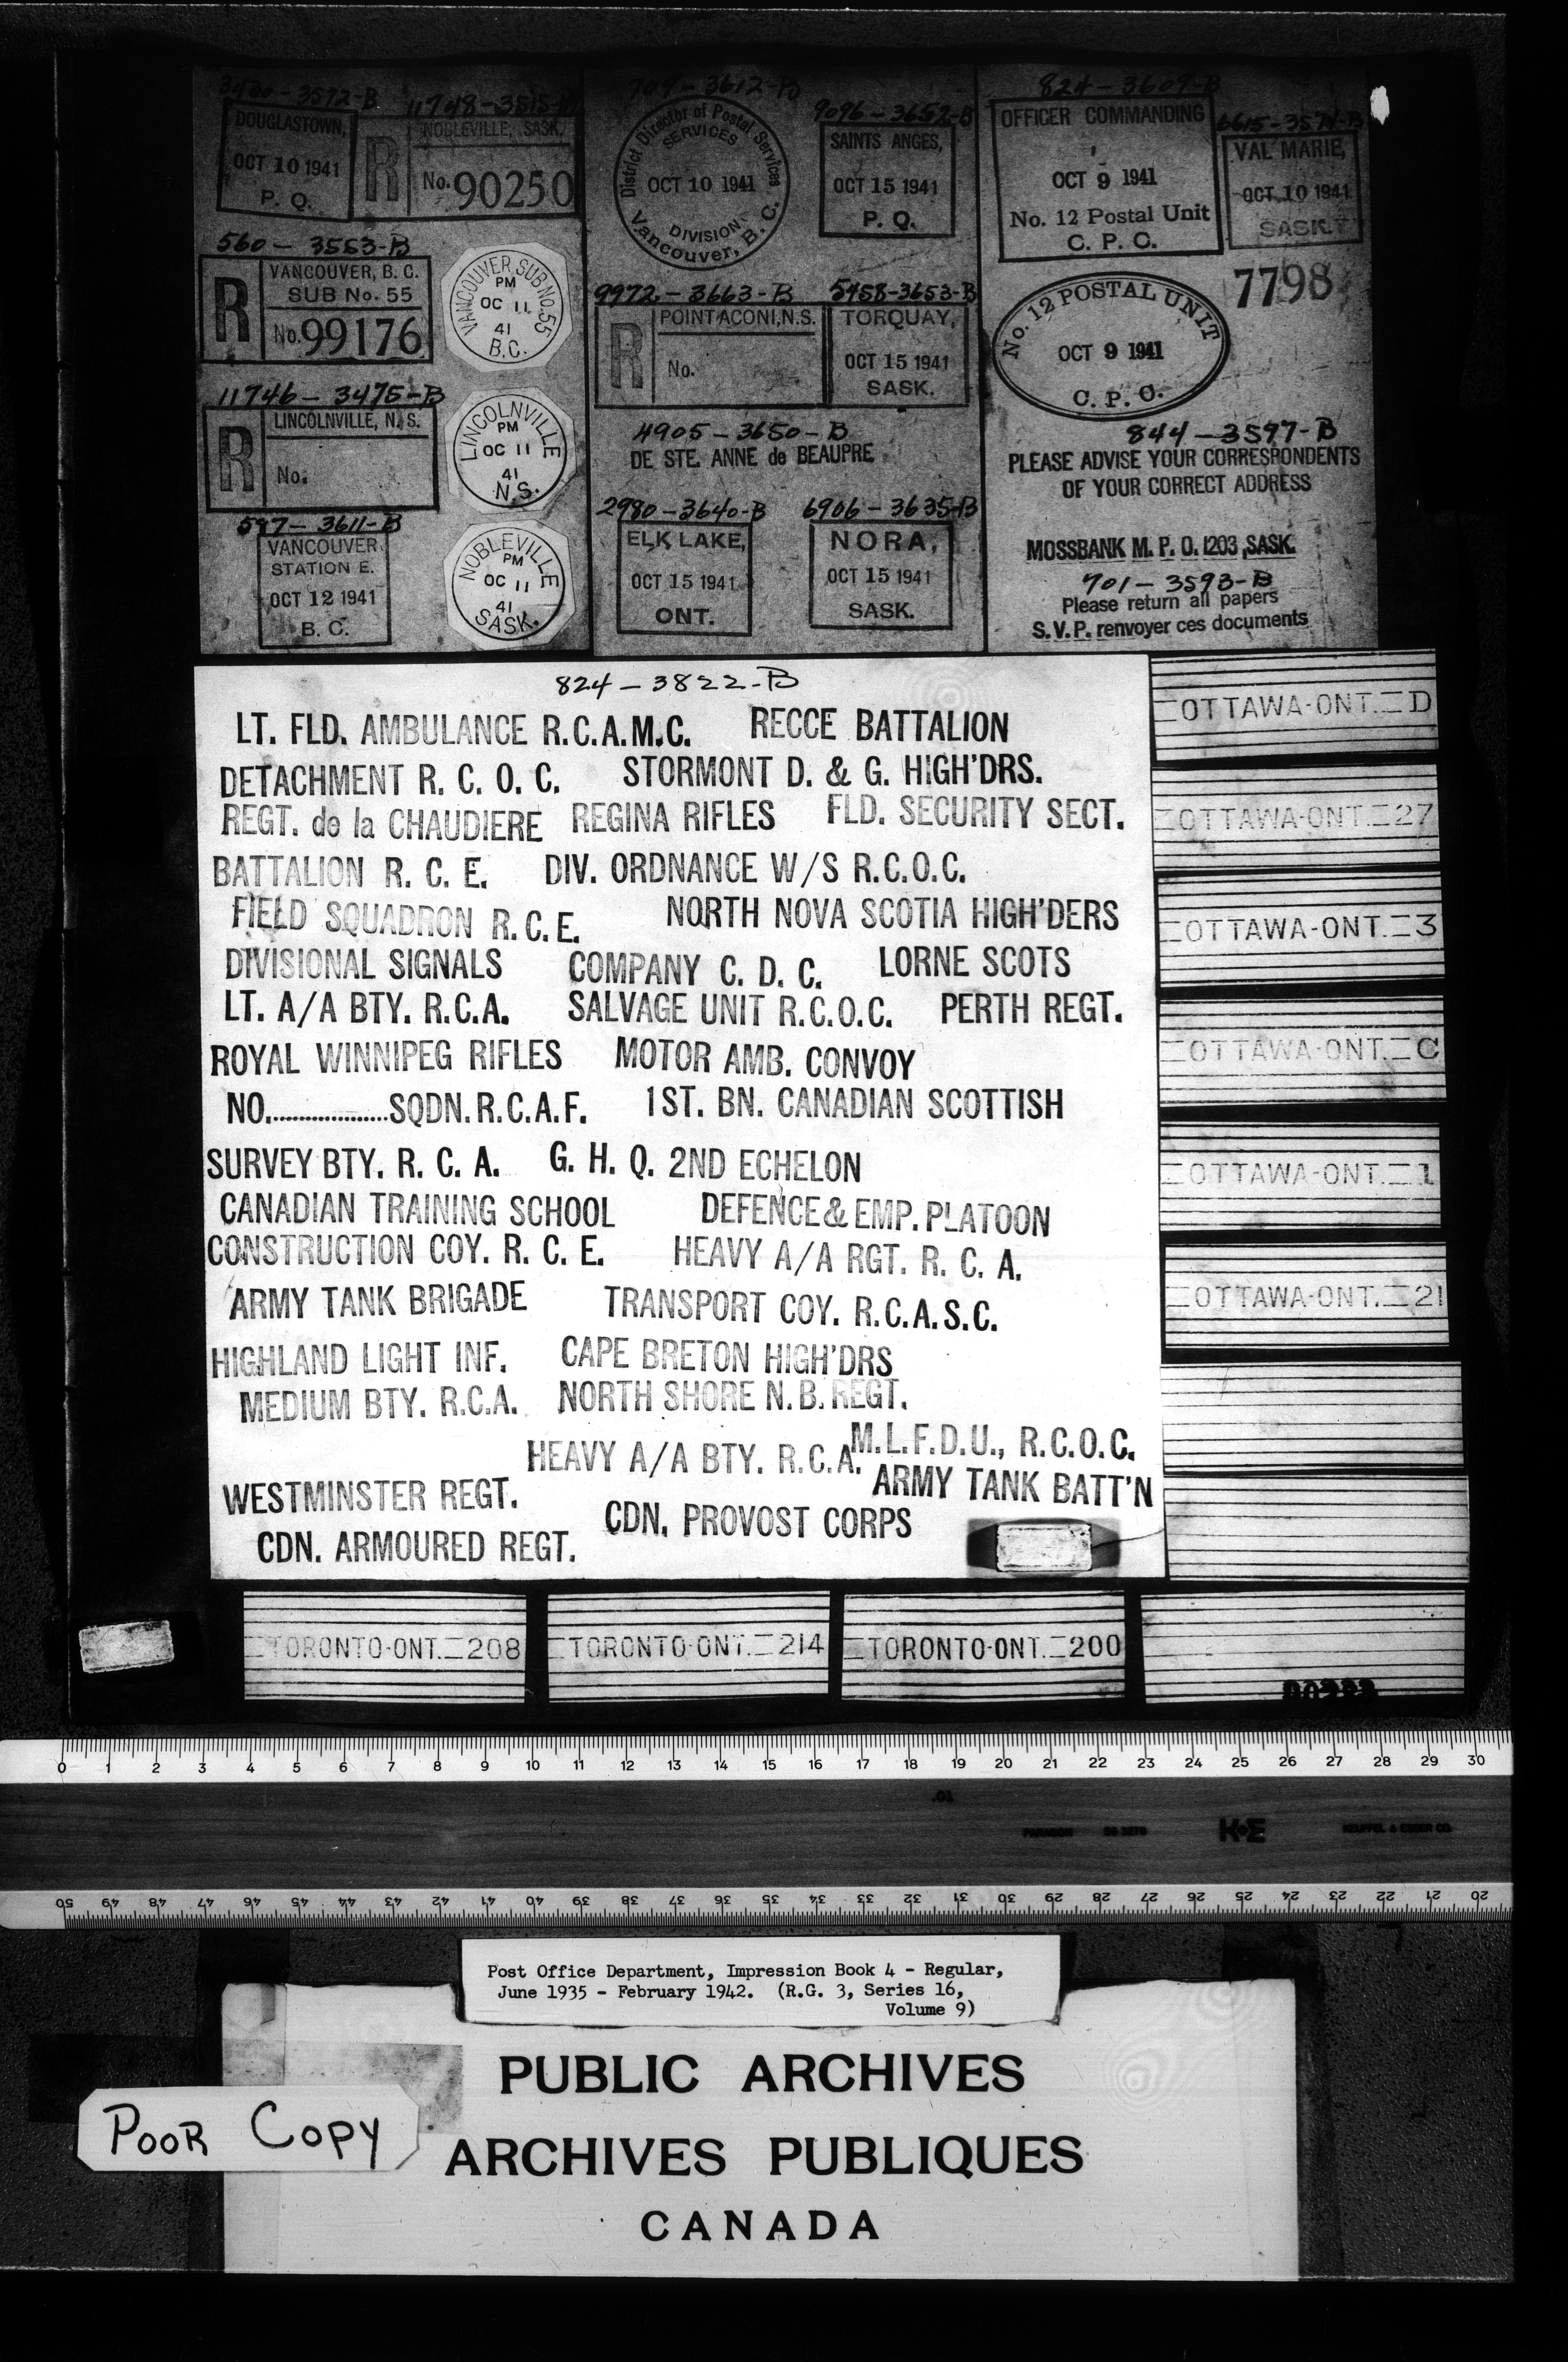 3480-3572-B
DOUGLASTOWN,
OCT 10 1941
P. Q.
11748-3515-B
R NOBLEVILLE, SASK.
No. 90250
560 - 3553-B
R VANCOUVER, B. C.
SUB No. 55
No. 99176
VANCOUVER SUB No. 55
PM
OC 11
41
B.C.
11746 - 3475-B
R LINCOLNVILLE, N. S.
No.
LINCOLNVILLE
PM
OC 11
41
N.S.
597 - 3611-B
VANCOUVER
STATION E.
OCT 12 1941
B. C.
NOBLEVILLE
PM
OC 11
41
SASK.
709 - 3612-B
District Director of Postal Services
SERVICES
OCT 10 1941
DIVISION
Vancouver, B. C.
9096-3652-B
SAINTS ANGES,
OCT 15 1941
P. Q.
9972 - 3663-B
R POINT ACONI, N.S.
No.
5458-3653-B
TORQUAY,
OCT 15 1941
SASK.
4905 - 3650 - B
DE STE. ANNE de BEAUPRE
2980 - 3640-B
ELK LAKE,
OCT 15 1941
ONT.
6906 - 3635-B
NORA,
OCT 15 1941
SASK.
824 - 3609-B
OFFICER COMMANDING
OCT 9 1941
No. 12 Postal Unit
C. P. C.
6615-3574-B
VAL MARIE,
OCT 10 1941
SASK.
7798
No. 12 POSTAL UNIT
OCT 9 1941
C. P. C.
844 - 3597-B
PLEASE ADVISE YOUR CORRESPONDENTS
OF YOUR CORRECT ADDRESS
MOSSBANK M. P. O. 1203, SASK.
701 - 3593-B
Please return all papers
S.V.P. renvoyer ces documents
824 - 3822-B
LT. FLD. AMBULANCE R.C.A.M.C. RECCE BATTALION
DETACHMENT R. C. O. C. STORMONT D. & G. HIGH'DRS.
REGT. de la CHAUDIERE REGINA RIFLES FLD. SECURITY SECT.
BATTALION R. C. E. DIV. ORDNANCE W/S R.C.O.C.
FIELD SQUADRON R.C.E. NORTH NOVA SCOTIA HIGH'DERS
DIVISIONAL SIGNALS COMPANY C. D. C. LORNE SCOTS
LT. A/A BTY. R.C.A. SALVAGE UNIT R.C.O.C. PERTH REGT.
ROYAL WINNIPEG RIFLES MOTOR AMB. CONVOY
NO....................SQDN. R.C.A.F. 1ST. BN. CANADIAN SCOTTISH
SURVEY BTY. R. C. A. G. H. Q. 2ND ECHELON
CANADIAN TRAINING SCHOOL DEFENCE & EMP. PLATOON
CONSTRUCTION COY. R. C. E. HEAVY A/A RGT. R. C. A.
ARMY TANK BRIGADE TRANSPORT COY. R.C.A.S.C.
HIGHLAND LIGHT INF. CAPE BRETON HIGH'DRS
MEDIUM BTY. R.C.A. NORTH SHORE N.B. REGT.
HEAVY A/A BTY. R.C.A. M.L.F.D.U., R.C.O.C.
WESTMINSTER REGT. ARMY TANK BATT'N
CDN. ARMOURED REGT. CDN. PROVOST CORPS
OTTAWA-ONT. D
OTTAWA-ONT. 27
OTTAWA-ONT. 3
OTTAWA-ONT. C
OTTAWA-ONT. 1
OTTAWA-ONT. 21
TORONTO-ONT. 208
TORONTO-ONT. 214
TORONTO-ONT. 200
0 1 2 3 4 5 6 7 8 9 10 11 12 13 14 15 16 17 18 19 20 21 22 23 24 25 26 27 28 29 30
.01
PARAGON
K+E
KEUFFEL & ESSER CO.
50 49 48 47 46 45 44 43 42 41 40 39 38 37 36 35 34 33 32 31 30 29 28 27 26 25 24 23 22 21 20
Post Office Department, Impression Book 4 - Regular,
June 1935 - February 1942. (R.G. 3, Series 16,
Volume 9)
PUBLIC ARCHIVES
POOR COPY
ARCHIVES PUBLIQUES
CANADA